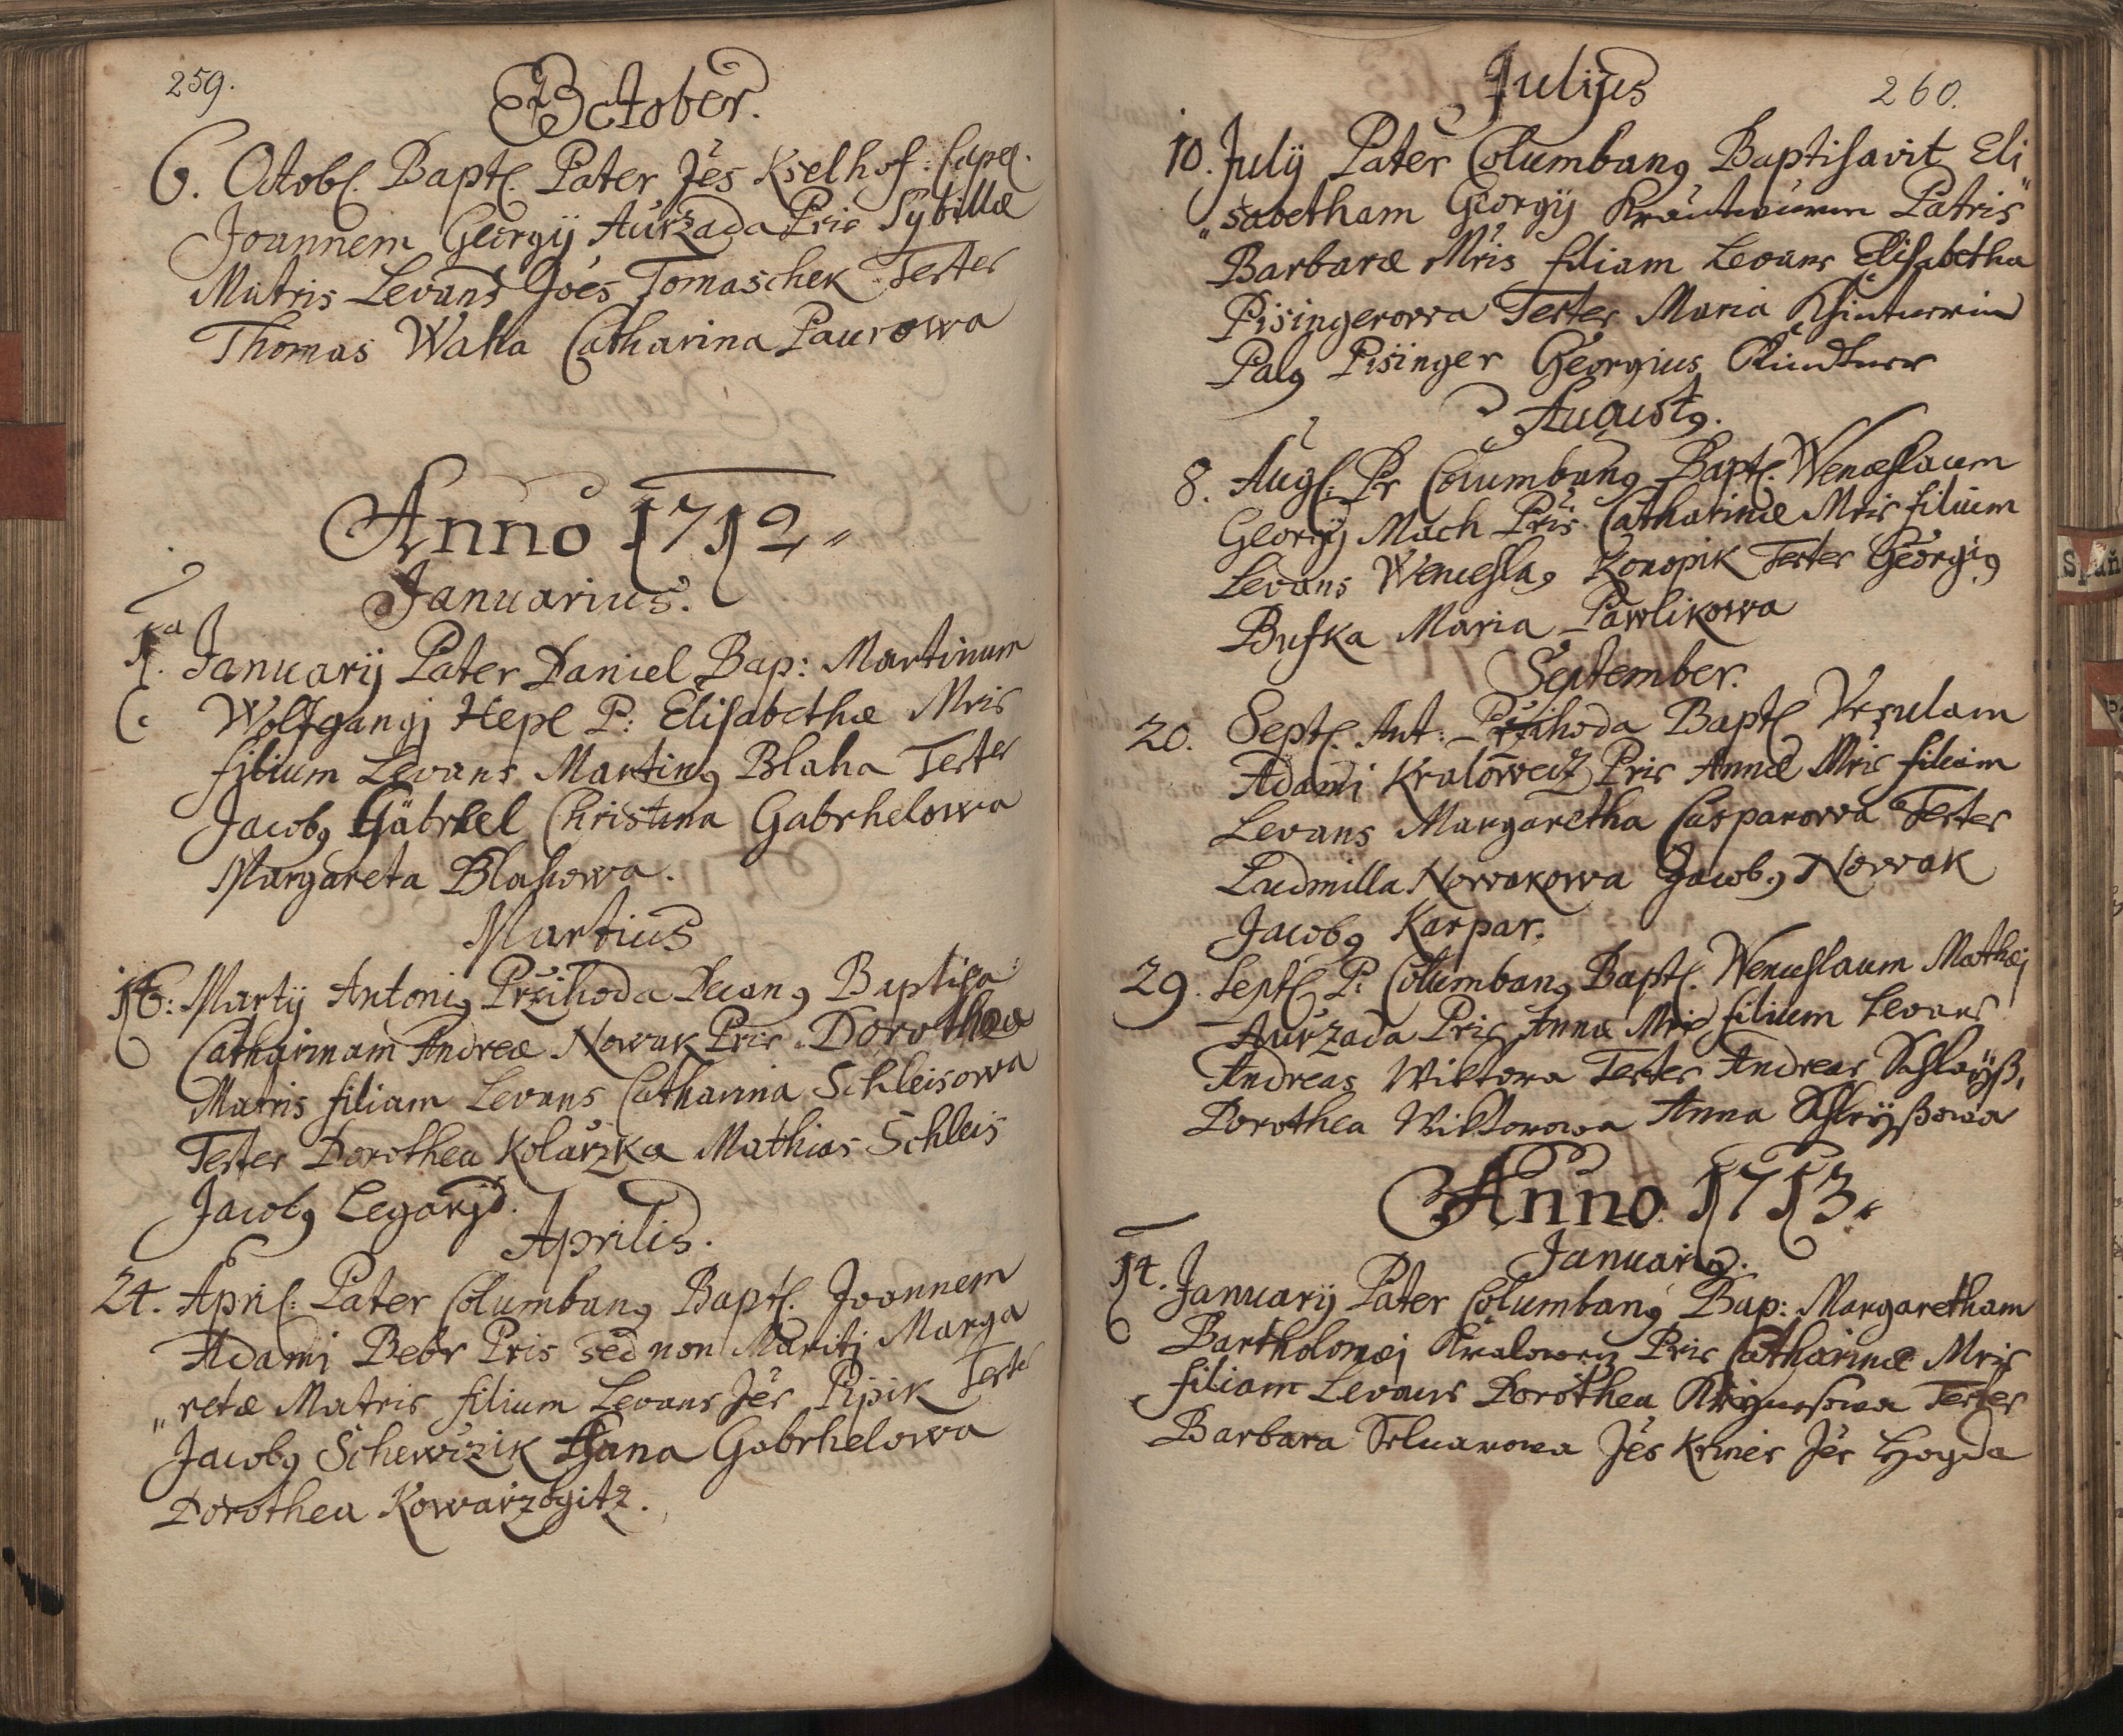 259.
October.
6. Octobr. Bapt. Pater Jes Kselhof: Capel.
Joannem Georgÿ Aurzada Pris Sybillæ
Matris Levans Joes Tomaschek Testes
Thomas Waha Catharina Paurowa
Anno 1712
Januarius.
1ma Januarij Pater Daniel Bap: Martinum
Wolfgangj Hepl P: Elisabethæ Mris
filium Levans Martin9 Blaha Testes
Jacob9 Gabrhel Christina Gabrhelowa
Margareta Blahowa.
Martius
16: Martÿ Antoni9 Przihoda Decan9 Baptisa:
Catharinam Andreæ Nowak Pris Dorotheæ
Matris filiam Levans Catharina Schleisowa
Testes Dorothea Kolarzka Mathias Schleis
Jacob9 Legard.
Aprilis.
24. April: Pater Columban9 Bapt. Joannem
Adami Bebr Pris sed non Maritj Marga
„retæ Matris filium Levans Jes Pipik Testes
Jacob9 Schewczik Anna Gabrhelowa
Dorothea Kowarzogitz.
Julijus
260.
10. Julÿ Pater Columban9 Baptisavit Eli„
„sabetham Georgÿ Patris
Barbaræ Mris filiam Levans Elisabetha
Pisingerowa Testes Maria
Pal9 Pisinger Georgius
August9.
8. Aug: Pr Columban9 Bapt. Wenceslaum
Georgÿ Mach Pris Catharinæ Mris filium
Levans Wencesla9 Konopik Testes Georgi9
Buska Maria Pawlikowa
September.
20. Sept. Ant: Przihoda Bapt Ursulam
Adami Kralowecz Pris Annæ Mris filiam
Levans Margaretha Casparowa Testes
Ludmilla Nowakowa Jacob9 Nowak
Jacob9 Karpar.
29. Sept. P: Columban9 Bapt. Wenceslaum Mathej
Aurzada Pris Annæ Mris filium Levans
Andreas Wiktora Testes Andreas Schleÿß,
Dorothea Wiktorowa Anna Schleÿßowa
Anno 1713.
Januari9.
14. Januarij Pater Columban9 Bap: Margaretham
Bartholomej Kralowecz Pris Catharinæ Mris
filiam Levans Dorothea Testes
Barbara Jes Jes Hogda